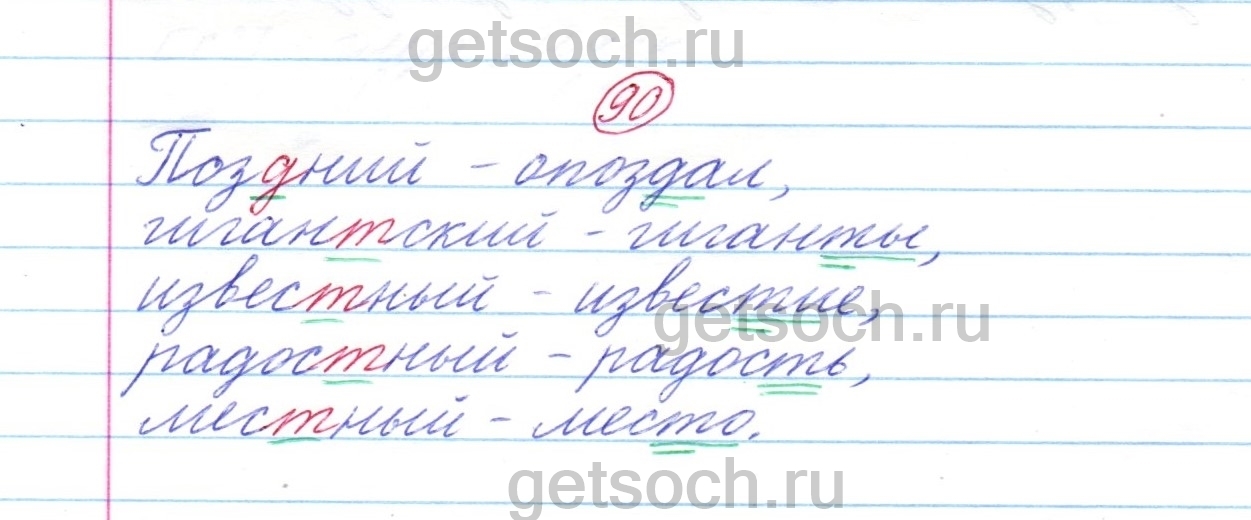 getsoch.ru
90
Поздний - опоздал,
гигантский - гиганты,
известный - известие,
getsoch.ru
радостный - радость,
местный - место.
getsoch.ru